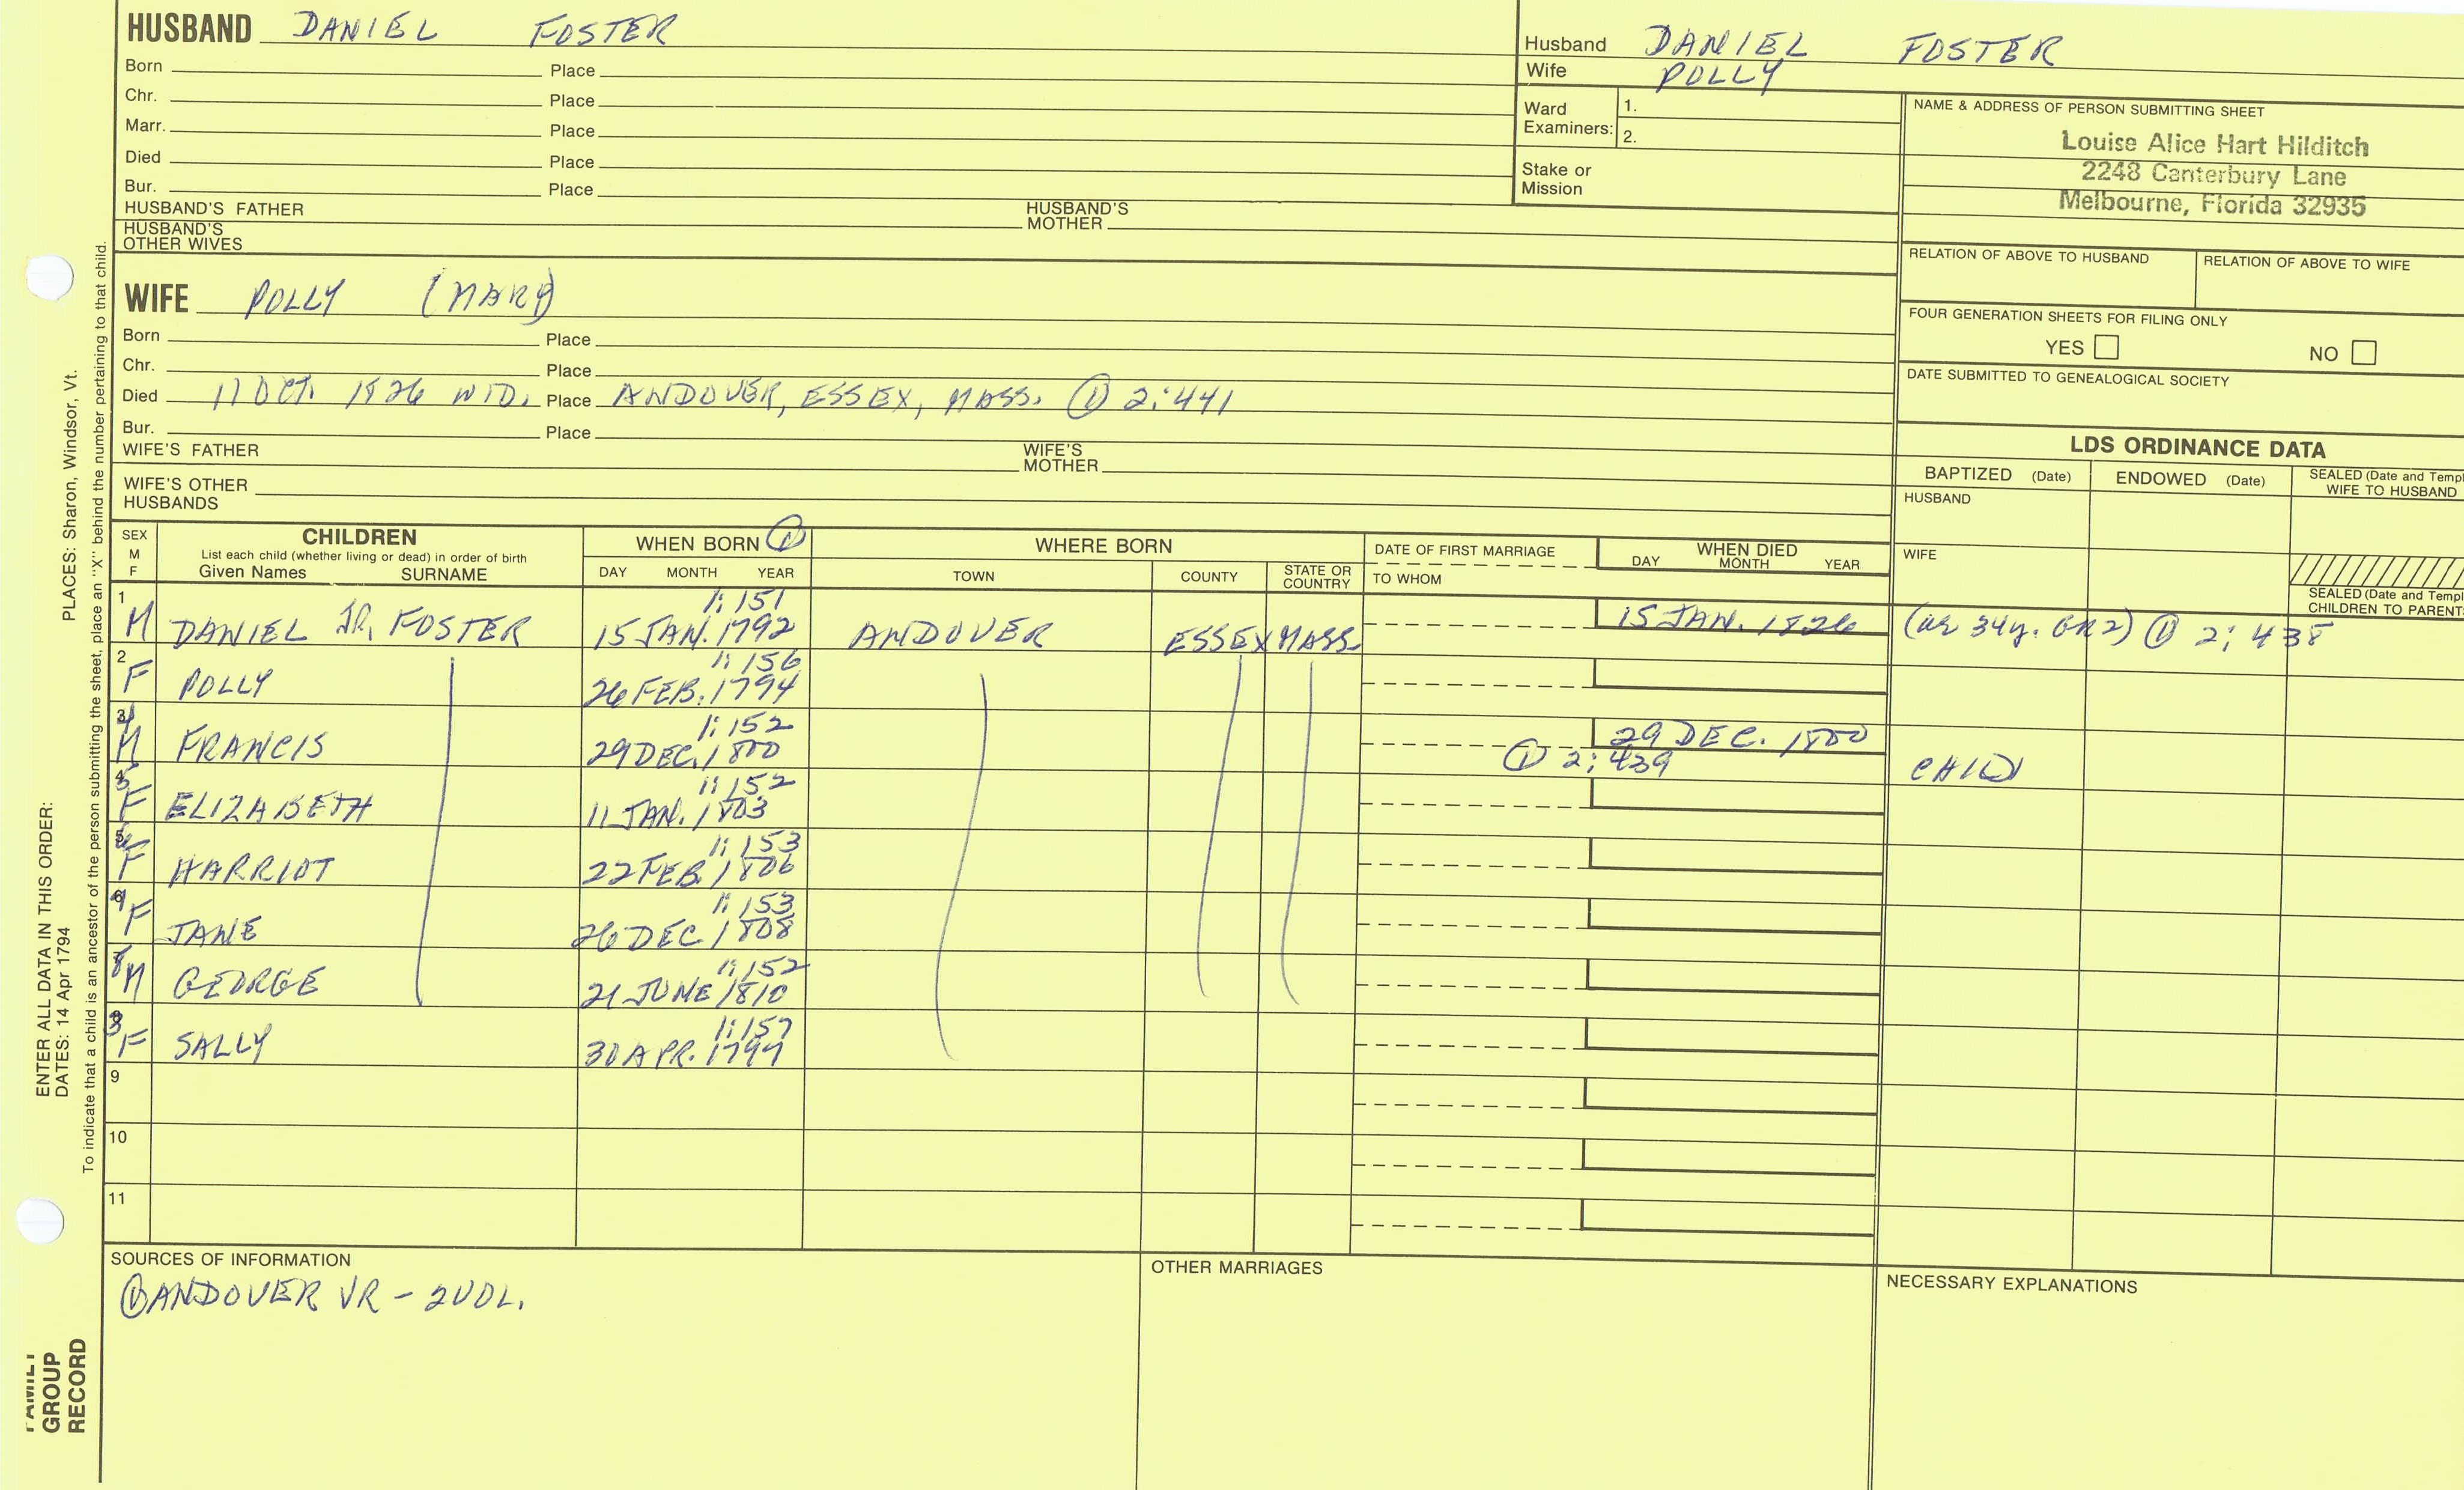 HUSBAND DANIEL FOSTER
Born Place
Chr. Place
Marr. Place
Died Place
Bur. Place
HUSBAND'S FATHER HUSBAND'S MOTHER
HUSBAND'S OTHER WIVES
Husband DANIEL FOSTER
Wife POLLY
Ward Examiners: 1.
2.
Stake or Mission
NAME & ADDRESS OF PERSON SUBMITTING SHEET
Louise Alice Hart Hilditch
2248 Canterbury Lane
Melbourne, Florida 32935
RELATION OF ABOVE TO HUSBAND RELATION OF ABOVE TO WIFE
FOUR GENERATION SHEETS FOR FILING ONLY
YES NO
DATE SUBMITTED TO GENEALOGICAL SOCIETY
WIFE POLLY (MARY)
Born Place
Chr. Place
Died 11 OCT. 1826 WID. Place ANDOVER, ESSEX, MASS. ① 2:441
Bur. Place
WIFE'S FATHER WIFE'S MOTHER
WIFE'S OTHER HUSBANDS
LDS ORDINANCE DATA
BAPTIZED (Date) ENDOWED (Date) SEALED (Date and Templ
WIFE TO HUSBAND
HUSBAND
WIFE
SEALED (Date and Templ
CHILDREN TO PARENT
SEX M F
CHILDREN
List each child (whether living or dead) in order of birth
Given Names SURNAME
WHEN BORN ①
DAY MONTH YEAR
WHERE BORN
TOWN COUNTY STATE OR COUNTRY
DATE OF FIRST MARRIAGE
TO WHOM
WHEN DIED
DAY MONTH YEAR
1 1:151
M DANIEL JR. FOSTER 15 JAN. 1792 ANDOVER ESSEX MASS. 15 JAN. 1826 (as 34y. GR2) ① 2:438
2 1:156
F POLLY 26 FEB. 1794
3 4 1:152
M FRANCIS 29 DEC. 1800 29 DEC. 1800
① 2:439 CHILD
4 5 1:152
F ELIZABETH 11 JAN. 1803
5 6 1:153
F HARRIOT 22 FEB. 1806
6 7 1:153
F JANE 26 DEC 1808
7 8 1:152
M GEORGE 21 JUNE 1810
8 3 1:157
F SALLY 30 APR. 1797
9
10
11
SOURCES OF INFORMATION
① ANDOVER VR - 2 VOL.
OTHER MARRIAGES
NECESSARY EXPLANATIONS
ENTER ALL DATA IN THIS ORDER:
DATES: 14 Apr 1794 PLACES: Sharon, Windsor, Vt.
To indicate that a child is an ancestor of the person submitting the sheet, place an "X" behind the number pertaining to that child.
FAMILY
GROUP
RECORD